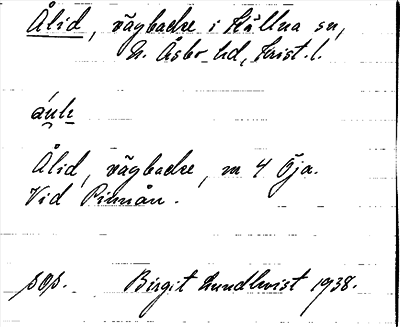 Ålid, vägbacke i Källna sn,
N. Åsbo hd, Krist. l.
Ålid, vägbacke, m 4 Öja.
Vid Pinnån.
sqs. Birgit Lundkvist 1938.